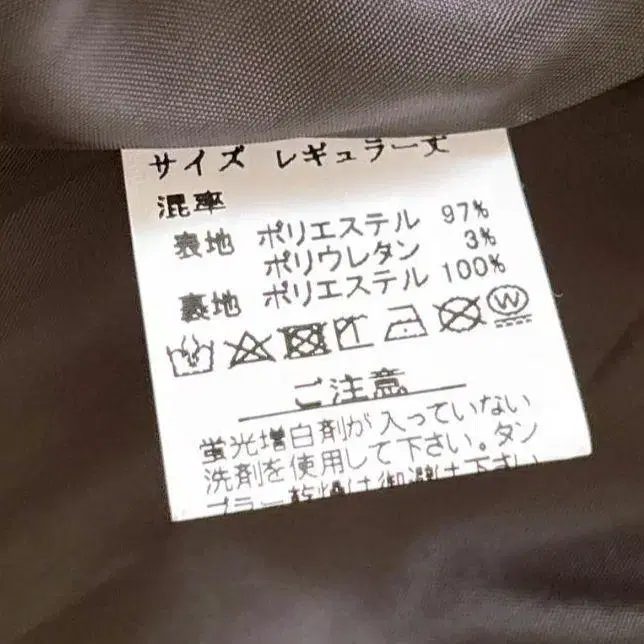 サイズ レギュラー丈
混率
表地 ポリエステル 97%
ポリウレタン 3%
裏地 ポリエステル 100%
W
ご注意
蛍光増白剤が入っていない
洗剤を使用して下さい。タン
ブラー乾燥は御避け下さい